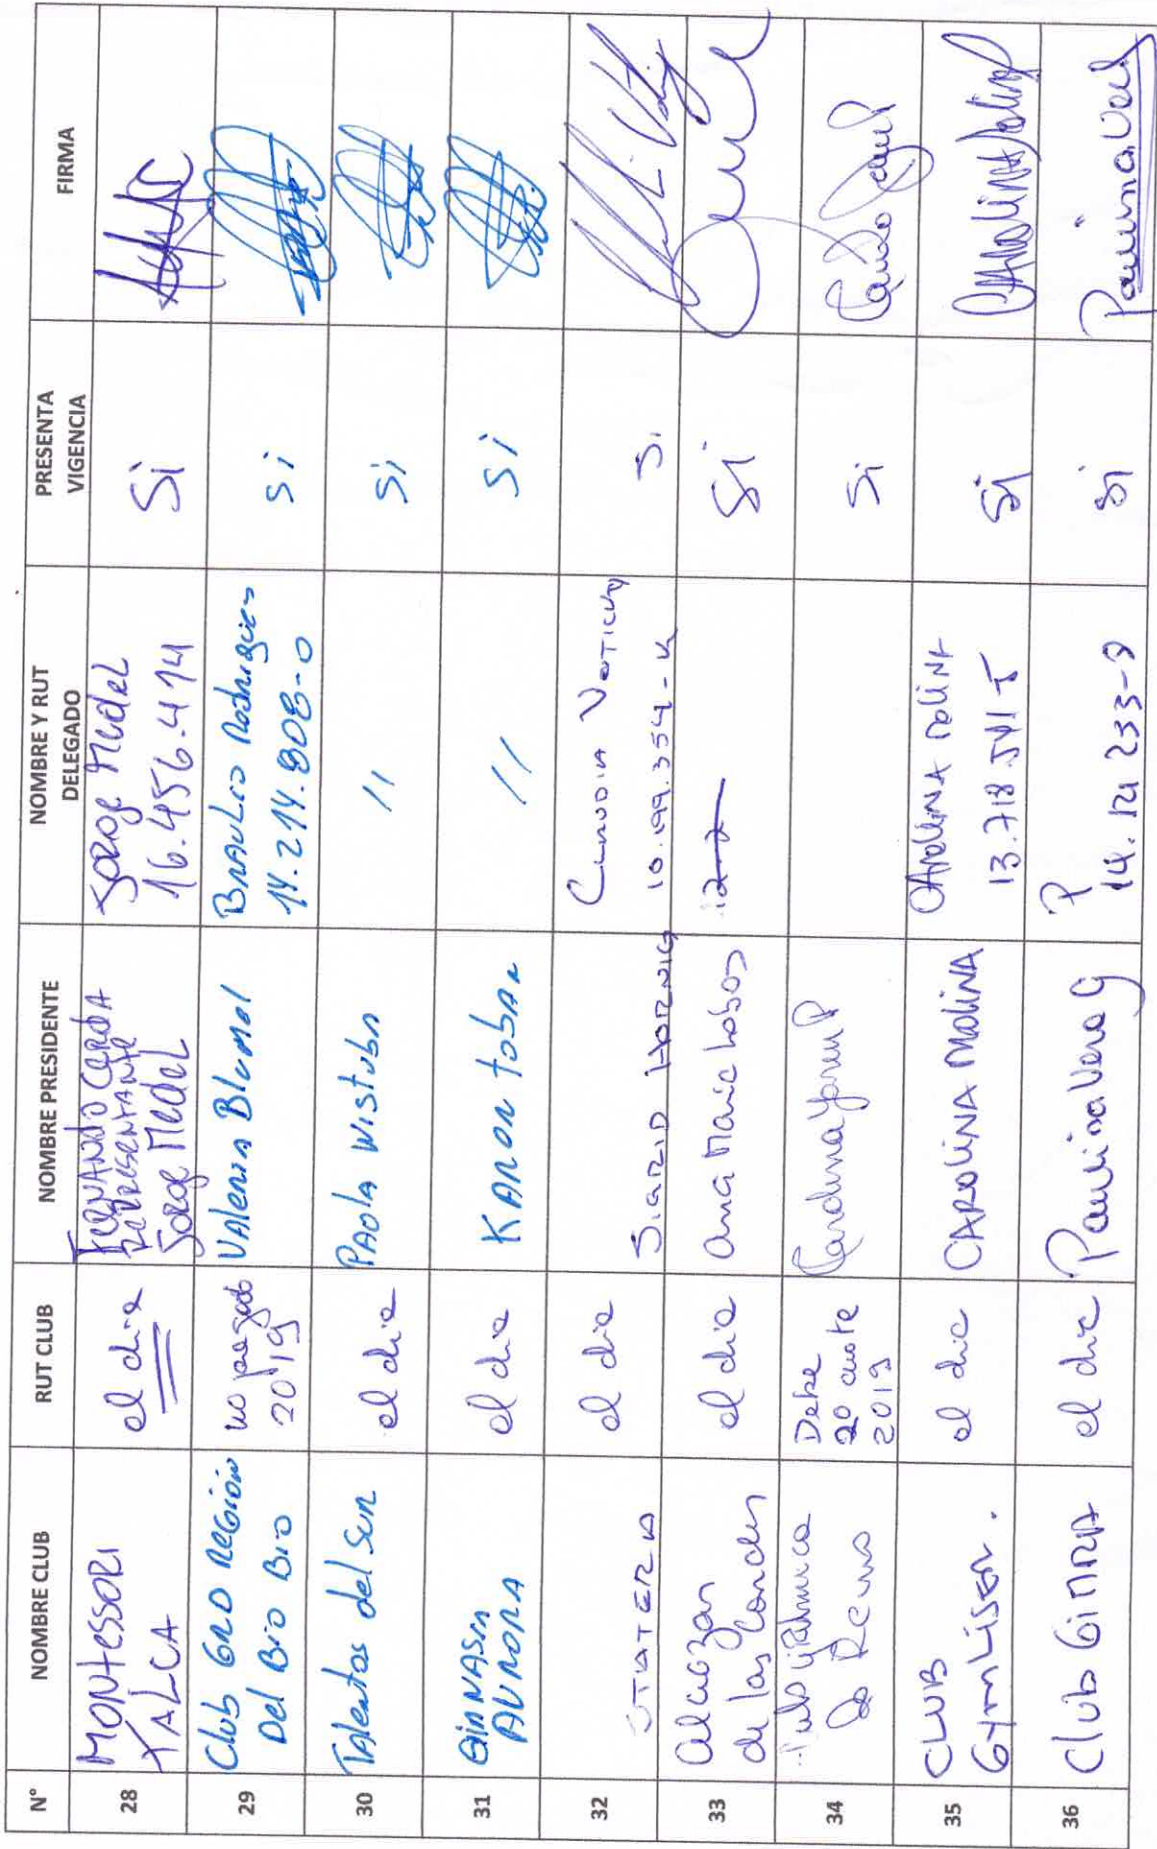 N°
NOMBRE CLUB
RUT CLUB
NOMBRE PRESIDENTE
NOMBRE Y RUT
DELEGADO
PRESENTA
VIGENCIA
FIRMA
28
MONTESSORI
TALCA
al dia
FERNANDO CERDA
REPRESENTANTE
Jorge Medel
Jorge Medel
16.456.414
Si
29
Club GRD REGIÓN
Del Bio Bio
no pagado
2019
Valeria Blumel
BRAULIO Rodriguez
14.214.808-0
Si
30
Talentos del Sur
al dia
PAOLA Wistuba
//
Si
31
GIMNASIA
AURORA
al dia
KAREN TOBAR
//
Si
32
al dia
HORNIG
CLAUDIA
10.199.354-K
Si
33
Alcazar
de las Condes
al dia
Ana Maria Lobos
Si
34
Club G. Ritmica
La Reina
Debe
2019
Carolina
Si
35
CLUB
GymLisen.
al dia
CAROLINA MOLINA
CAROLINA MOLINA
Si
CAROLINA Molina
36
Club GIMRA
al dia
Paulina Vera G
P
Si
Paulina Vera